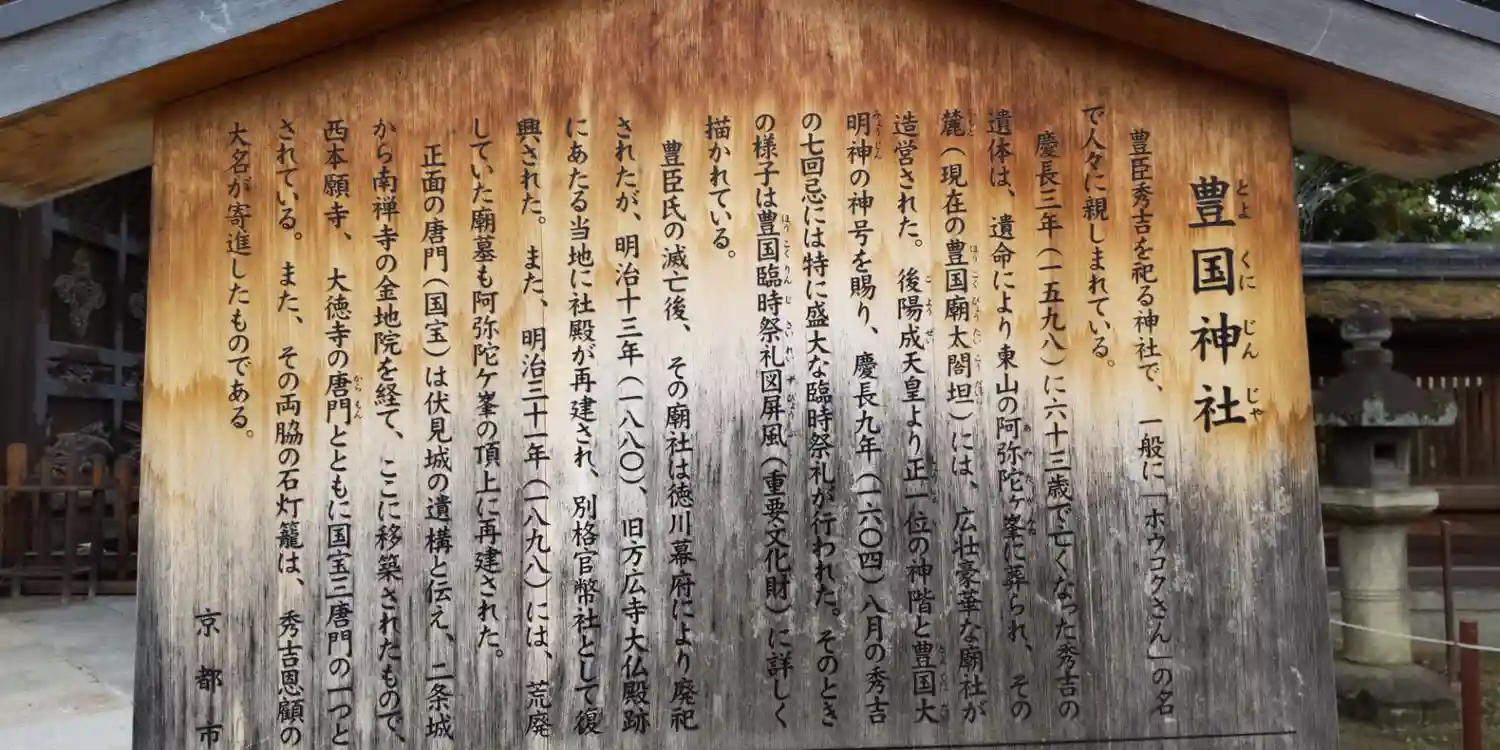 豊国神社
豊臣秀吉を祀る神社で、一般に「ホウコクさん」の名
で人々に親しまれている。
慶長三年(一五九八)に六十三歳で亡くなった秀吉の
遺体は、遺命により東山の阿弥陀ヶ峯に葬られ、その
麓(現在の豊国廟太閤坦)には、広壮豪華な廟社が
造営された。後陽成天皇より正一位の神階と豊国大
明神の神号を賜り、慶長九年(一六〇四)八月の秀吉
の七回忌には特に盛大な臨時祭礼が行われた。そのとき
の様子は豊国臨時祭礼図屏風(重要文化財)に詳しく
描かれている。
豊臣氏の滅亡後、その廟社は徳川幕府により廃祀
されたが、明治十三年(一八八〇)、旧方広寺大仏殿跡
にあたる当地に社殿が再建され、別格官幣社として復
興された。また、明治三十一年(一八九八)には、荒廃
していた廟墓も阿弥陀ケ峯の頂上に再建された。
正面の唐門(国宝)は伏見城の遺構と伝え、二条城
から南禅寺の金地院を経て、ここに移築されたもので、
西本願寺、大徳寺の唐門とともに国宝三唐門の一つと
されている。また、その両脇の石灯籠は、秀吉恩顧の
大名が寄進したものである。
京都市